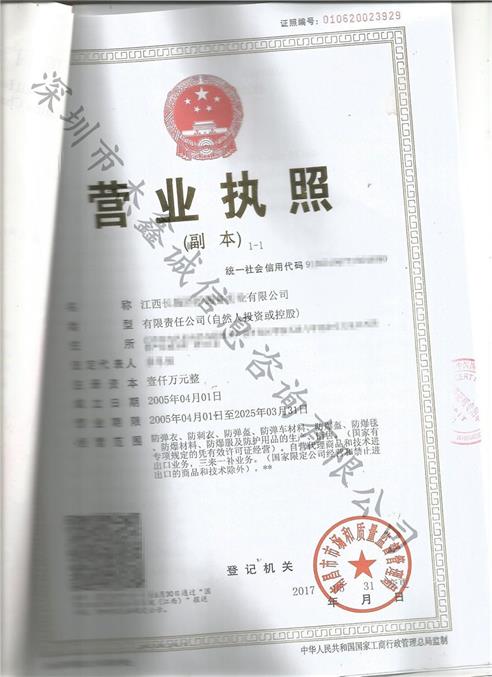 证照编号: 010620023929
营业执照
(副 本) 1-1
统一社会信用代码
名 称 江西 有限公司
类 型 有限责任公司(自然人投资或控股)
住 所
法定代表人
注册资本 壹仟万元整
成立日期 2005年04月01日
营业期限 2005年04月01日至2025年03月31日
经营范围 防弹衣、防刺衣、防弹盔、防弹车材料、防爆盔、防爆毯
、防爆材料、防爆服及防护用品的生产、销售。(国家有
专项规定的凭有效许可证经营),自营代理商品和技术进
出口业务,三来一补业务。(国家限定公司经营和禁止进
出口的商品和技术除外)。**
登记机关
2017 年 月 31 日
南昌市市场和质量监督管理局
中华人民共和国国家工商行政管理总局监制
深圳市杰鑫诚信息咨询有限公司